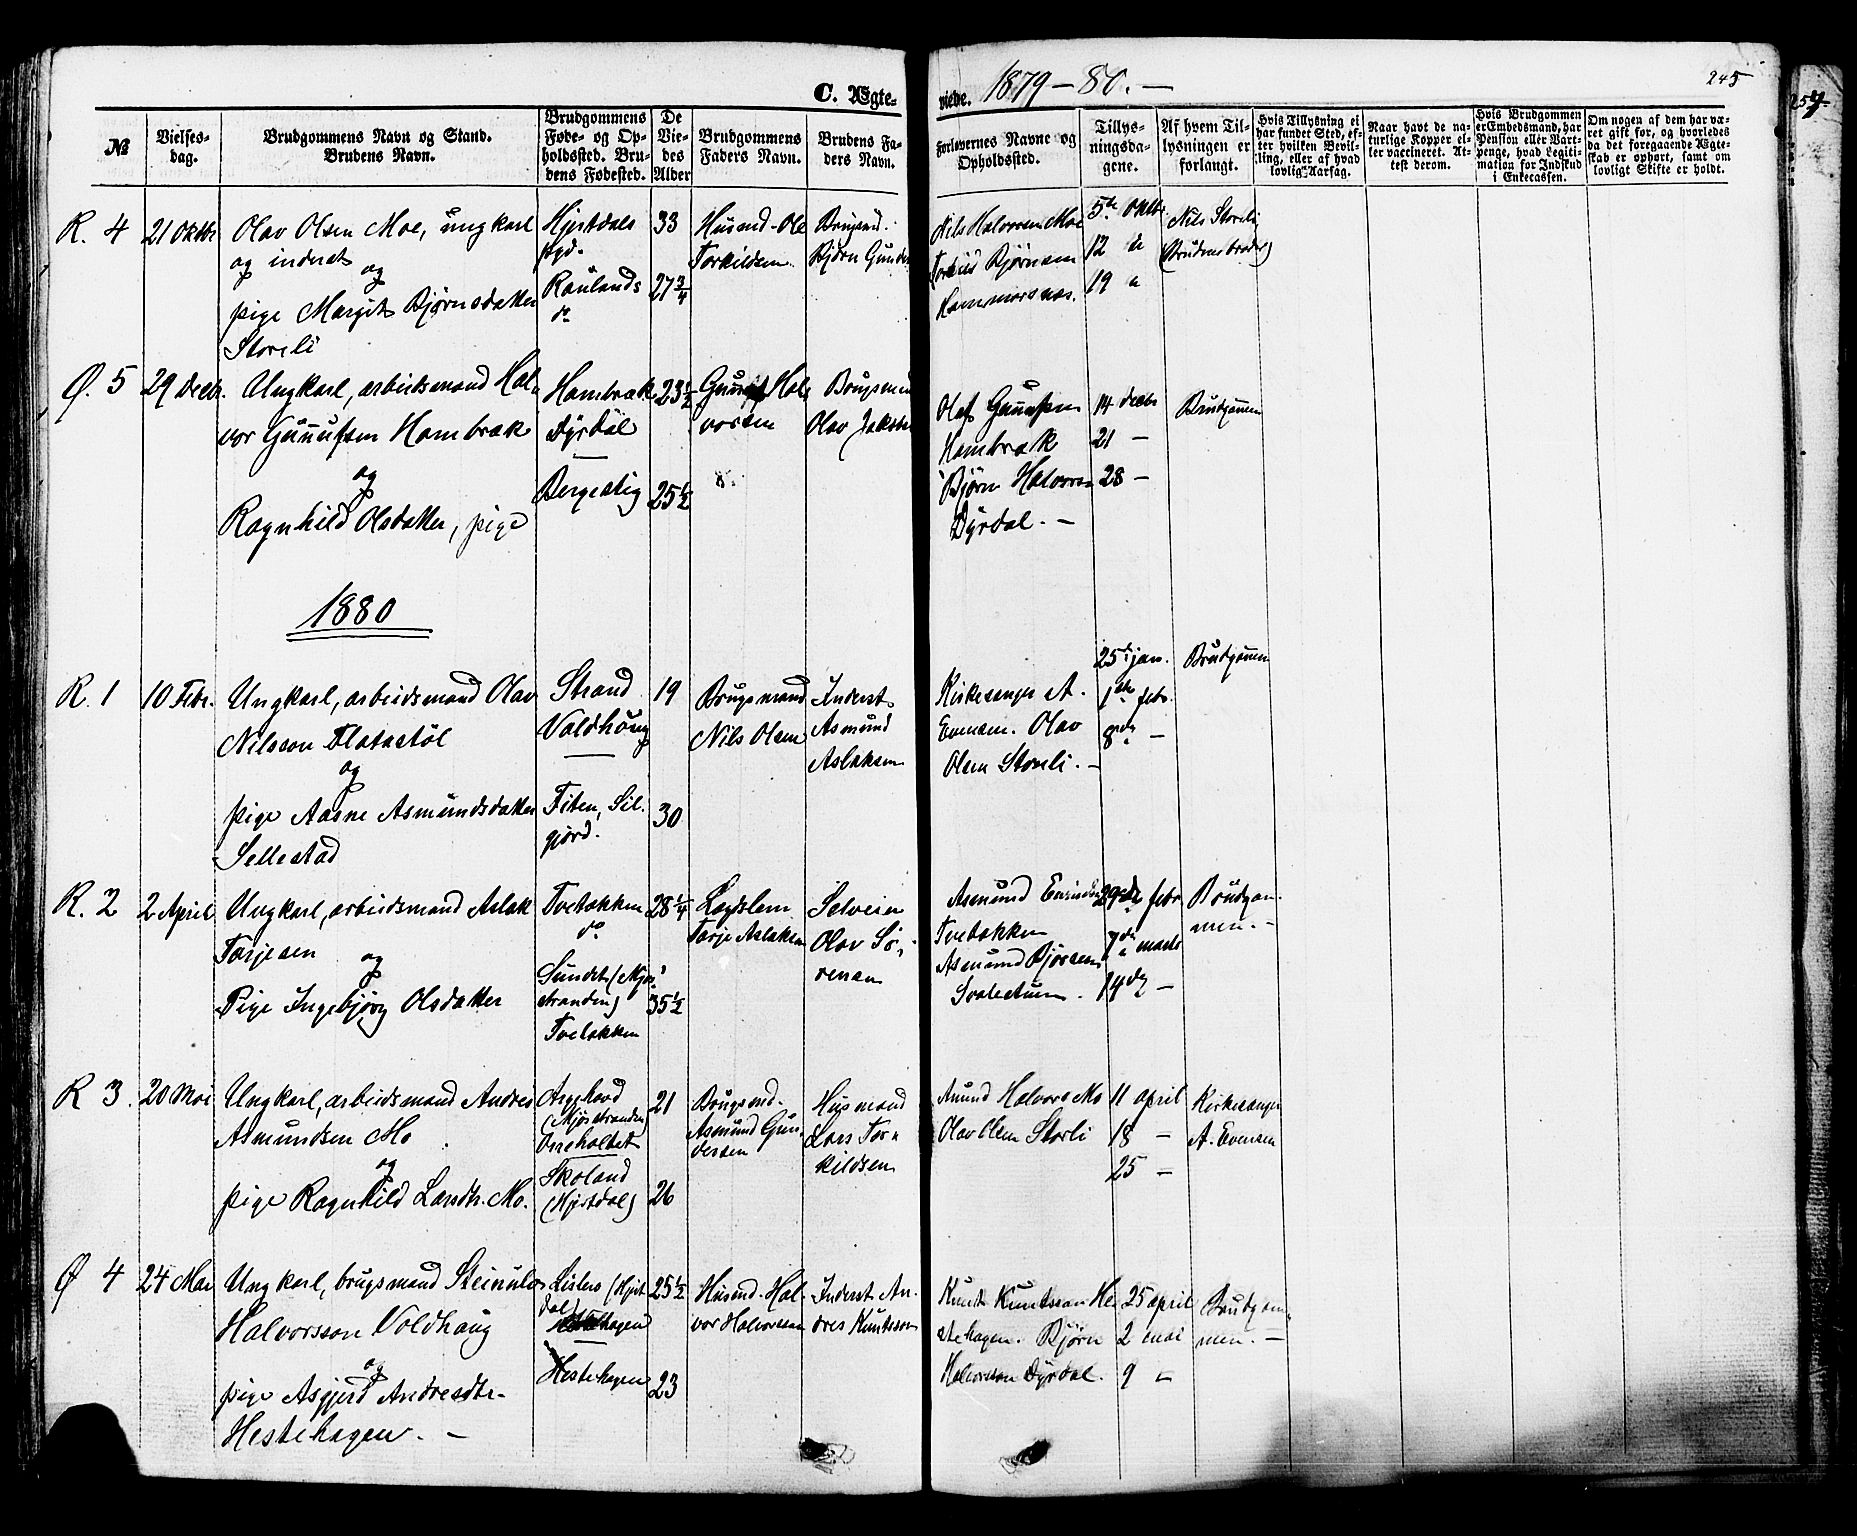 C. Ægte-
viede. 1879-80. -
245
257
№
Vielses-
dag.
Brudgommens Navn og Stand.
Brudens Navn.
Brudgommens
Føde- og Op-
holdssted. Bru-
dens Fødested.
De
Vie-
des
Alder
Brudgommens
Faders Navn.
Brudens Fa-
ders Navn.
Forlovernes Navne og
Opholdssted.
Tillys-
ningsda-
gene.
Af hvem Til-
lysningen er
forlangt.
Hvis Tillysning ei
har fundet Sted, ef-
ter hvilken Bevil-
ling, eller af hvad
lovlig Aarsag.
Naar havt de na-
turlige Kopper el-
ler vaccineret. At-
test derom.
Hvis Brudgommen
er Embedsmand, har
Pension eller Vart-
penge, hvad Legiti-
mation for Indskud
i Enkecassen.
Om nogen af dem har væ-
ret gift før, og hvorledes
da det foregaaende Ægte-
skab er ophørt, samt om
lovligt Skifte er holdt.
R. 4
21 Oktbr.
Olav Olsen Moe, ungkarl
og inderst
og
pige Margit Bjørnsdatter
Storeli
Hjertdals
sogd.
Raulands
do
33
27 3/4
Husmd. Ole
Torkildsen
Brugsmd.
Bjørn Gunders
Nils Halvorsen Moe
Torkild Bjørnsen
5te Oktbr
12 "
19 "
Nils Storeli
(Brudens broder)
Ø. 5
29 Decbr.
Ungkarl, arbeidsmand Hal-
vor Gunnufsen Hambræk
og
Ragnhild Olsdatter, pige
Hambræk
Dyrdal
Bergestig
23 1/2
25 1/2
Gunnuf Hal-
vorsen
Brugsmd
Olav Jakobs
Olaf Gunnufsen
Hambræk
Bjørn Halvorsen
Dyrdal. -
14 decbr
21 -
28 -
Brudgommen
1880
R. 1
10 Febr.
Ungkarl, arbeidsmand Olav
Nilsson Flatastøl
og
pige Aasne Asmundsdatter
Sellestad
Strand
Voldhoug
Fiten, Sil-
gjord.
19
30
Brugsmand
Nils Olsen
Inderst
Asmund
Aslaksen
Kirkesanger A.
Evensen. Olav
Olsen Storeli. -
25de jan.
1ste febr.
8de -
Brudgommen
R. 2
2 April
Ungkarl, arbeidsmand Aslak
Torjesen
og
Pige Ingebjørg Olsdatter
Tvetakken
do
Sundet (Mjøs-
stranden)
Tvetakken
28 1/4
35 1/2
Lægdslem
Torje Aslaksen
Selveier
Olav Sø-
rensen
Tvetakken
Asmund Bjørnsen
29de febr
7de marts
14de -
Brudgom-
men. -
R 3.
20 Mai
Ungkarl, arbeidsmand Andres
Asmundsen Mo
og
pige Ragnhild Larsdtr. Mo.
(Mjøsstranden)
Orreholtet
Skoland
(Hjertdal)
21
26
Brugsmd.
Asmund Gun-
dersen
Husmand
Lars Tor-
kildsen
Amund Halvors Mo
Olav Olsen Storli
11 april
18 -
25 -
Kirkesanger
A. Evensen
Ø 4
24 Mai
Ungkarl, brugsmand Steinulv
Halvorsson Voldhaug
og
pige Asgjerd Andresdtr.
Hestehagen. -
(Hjert-
dal)
Hestehagen
25 1/2
23
Husmd. Hal-
vor Halvorsen
Inderst An-
dres Knutsson
Knut Knutsson He-
stehagen. Bjørn
Halvorsson Dyrdal.
25 april
2 mai
9 -
Brudgom-
men. -